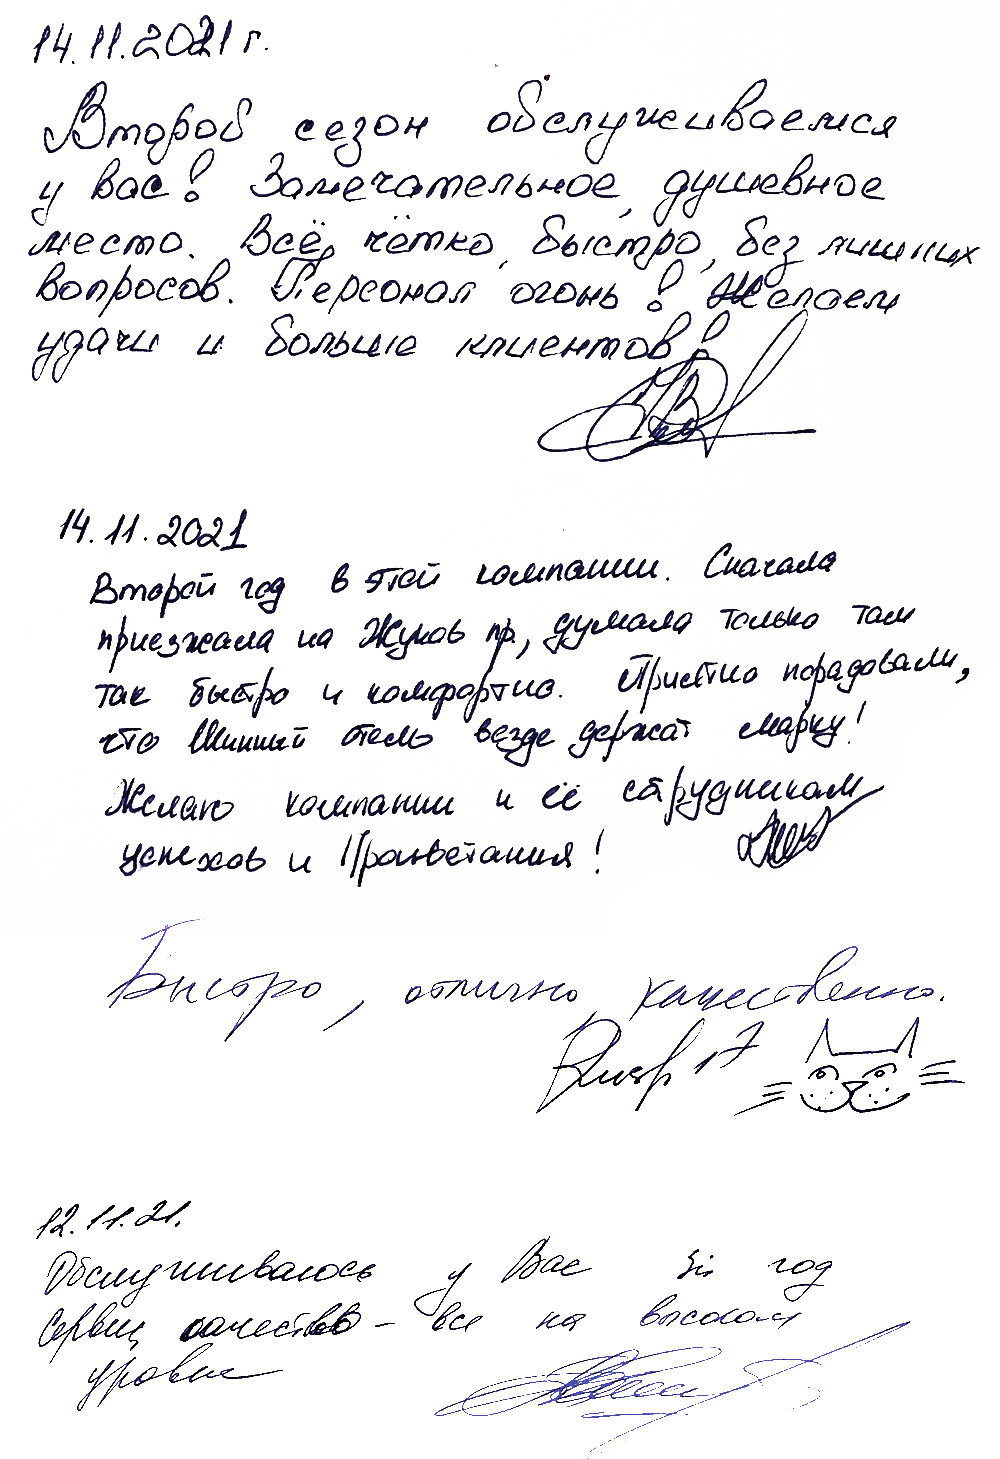 14.11.2021 г.
Второй сезон обслуживаемся
у вас! Замечательное, душевное
место. Всё, чётко, быстро, без лишних
вопросов. Персонал огонь! Желаем
удачи и больше клиентов!
14.11.2021
Второй год в этой компании. Сначала
приезжала на Жуков пр., думала только там
так быстро и комфортно. Приятно порадовали,
что Шинный отель везде держат марку!
Желаю компании и её сотрудникам
успехов и Процветания!
Быстро, отлично, качественно.
17
12.11.21.
Обслуживаюсь у Вас 5й год
Сервис, качество - все на высоком
уровне